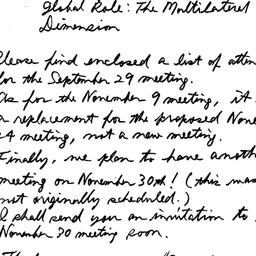 Global Role: The Multilateral
Dimension
Please find enclosed a list of atten
for the September 29 meeting.
As for the November 9 meeting, it
a replacement for the proposed Nove
4 meeting, not a new meeting.
Finally, we plan to have anoth
meeting on November 30th! (this was
not originally scheduled.)
I shall send you an invitation to
November 30 meeting soon.